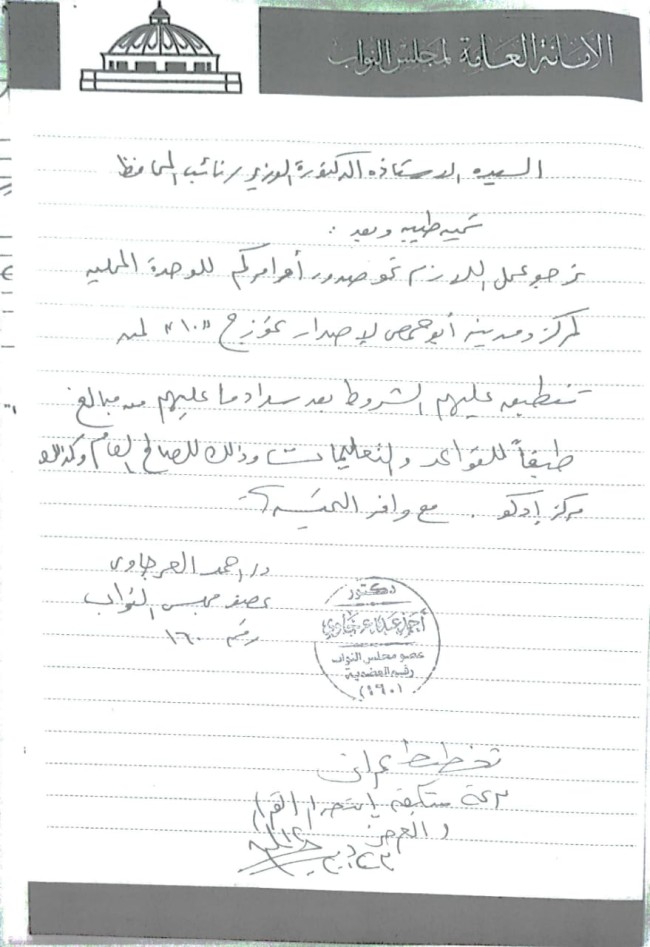 الأمانة العامة لمجلس النواب
السيدة الاستاذه الدكتورة الوزير / نائب المحافظ
تحيه طيبه وبعد :
نرجو عمل اللازم نحو صدور أوامركم للوحدة المحليه
لمركز ومدينه أبوحمص لإصدار نموزج "١٠" لمن
تنطبق عليهم الشروط بعد سداد ما عليهم من مبالغ
طبقاً للقواعد والتعليمات وذلك للصالح العام وكذلك
مركز إدكو . مع وافر التحية
د / احمد العرجاوى
عضو مجلس النواب
رقم ١٦٠
دكتور
أحمد
عضو مجلس النواب
رقم العضوية
تخطيط عمرانى
القرار
والعرض